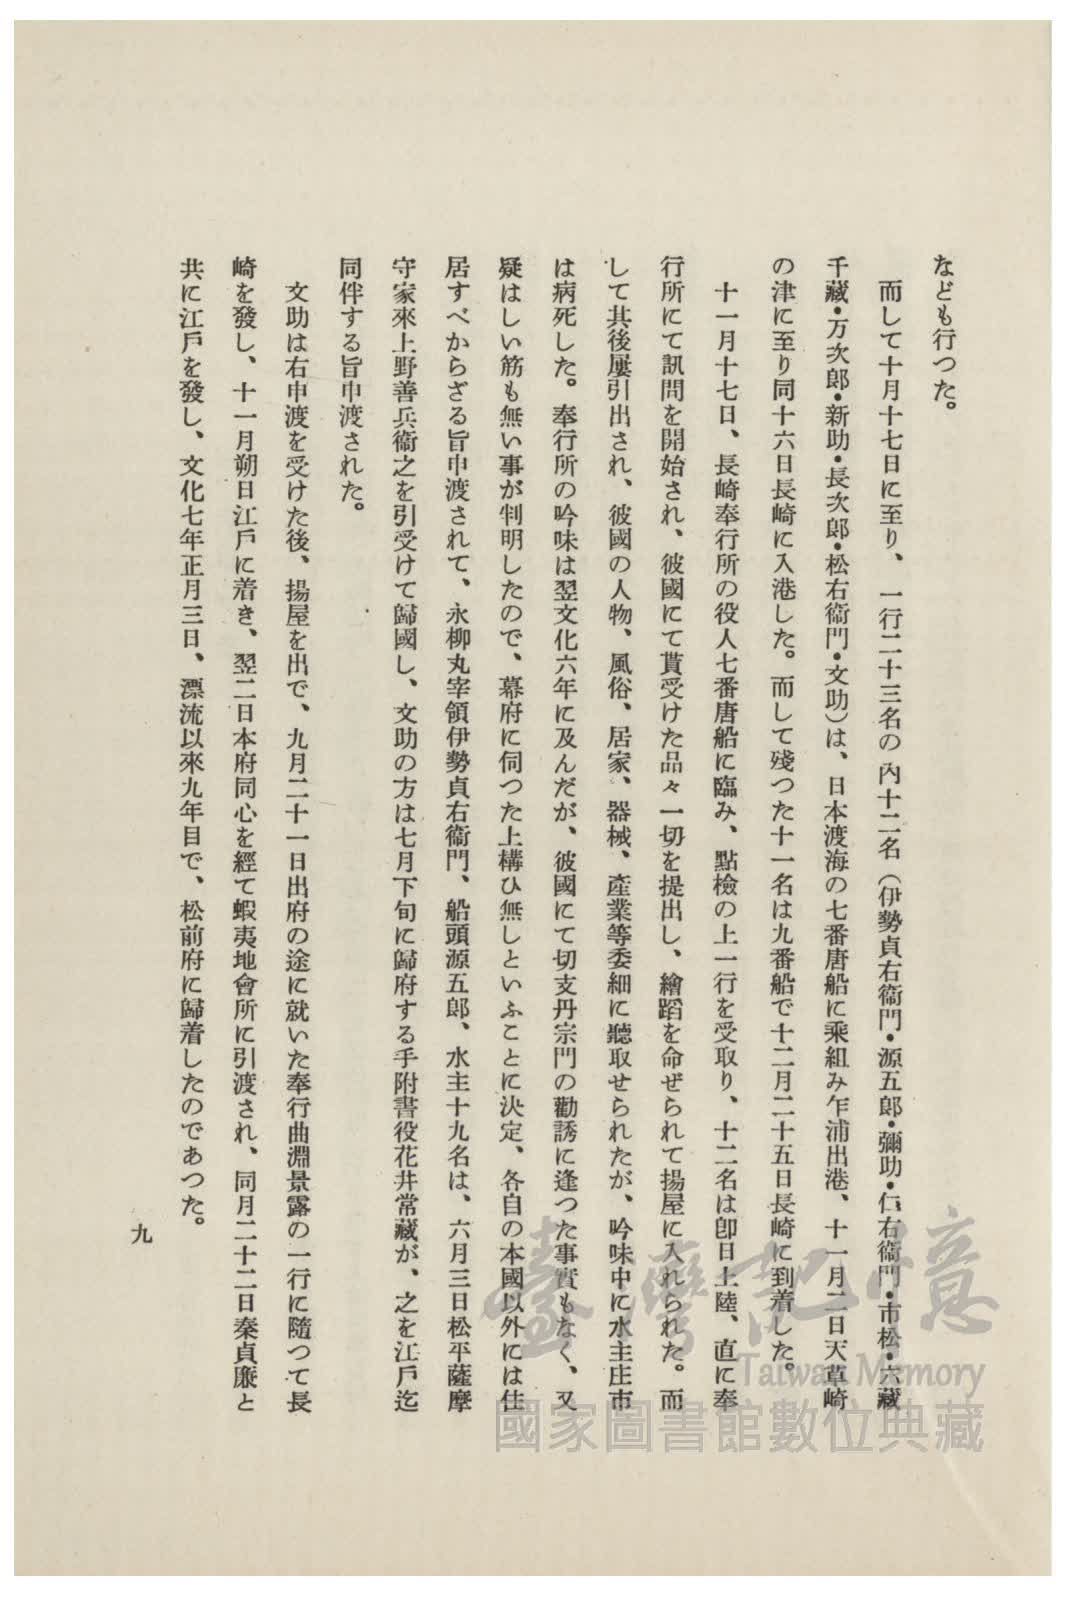 なども行つた。
而して十月十七日に至り、一行二十三名の內十二名（伊勢貞右衞門・源五郎・彌助・仁右衞門・市松・六藏
千藏・万次郎・新助・長次郎・松右衞門・文助）は、日本渡海の七番唐船に乘組み乍浦出港、十一月二日天草崎
の津に至り同十六日長崎に入港した。而して殘つた十一名は九番船で十二月二十五日長崎に到着した。
十一月十七日、長崎奉行所の役人七番唐船に臨み、點檢の上一行を受取り、十二名は卽日上陸、直に奉
行所にて訊問を開始され、彼國にて貰受けた品々一切を提出し、繪蹈を命ぜられて揚屋に入れられた。而
して其後屢引出され、彼國の人物、風俗、居家、器械、產業等委細に聽取せられたが、吟味中に水主庄市
は病死した。奉行所の吟味は翌文化六年に及んだが、彼國にて切支丹宗門の勸誘に逢つた事實もなく、又
疑はしい筋も無い事が判明したので、幕府に伺つた上構ひ無しといふことに決定、各自の本國以外には住
居すべからざる旨申渡されて、永柳丸宰領伊勢貞右衞門、船頭源五郎、水主十九名は、六月三日松平薩摩
守家來上野善兵衞之を引受けて歸國し、文助の方は七月下旬に歸府する手附書役花井常藏が、之を江戶迄
同伴する旨申渡された。
文助は右申渡を受けた後、揚屋を出で、九月二十一日出府の途に就いた奉行曲淵景露の一行に隨つて長
崎を發し、十一月朔日江戶に着き、翌二日本府同心を經て蝦夷地會所に引渡され、同月二十二日秦貞廉と
共に江戶を發し、文化七年正月三日、漂流以來九年目で、松前府に歸着したのであつた。
九
臺灣記憶
Taiwan Memory
國家圖書館數位典藏